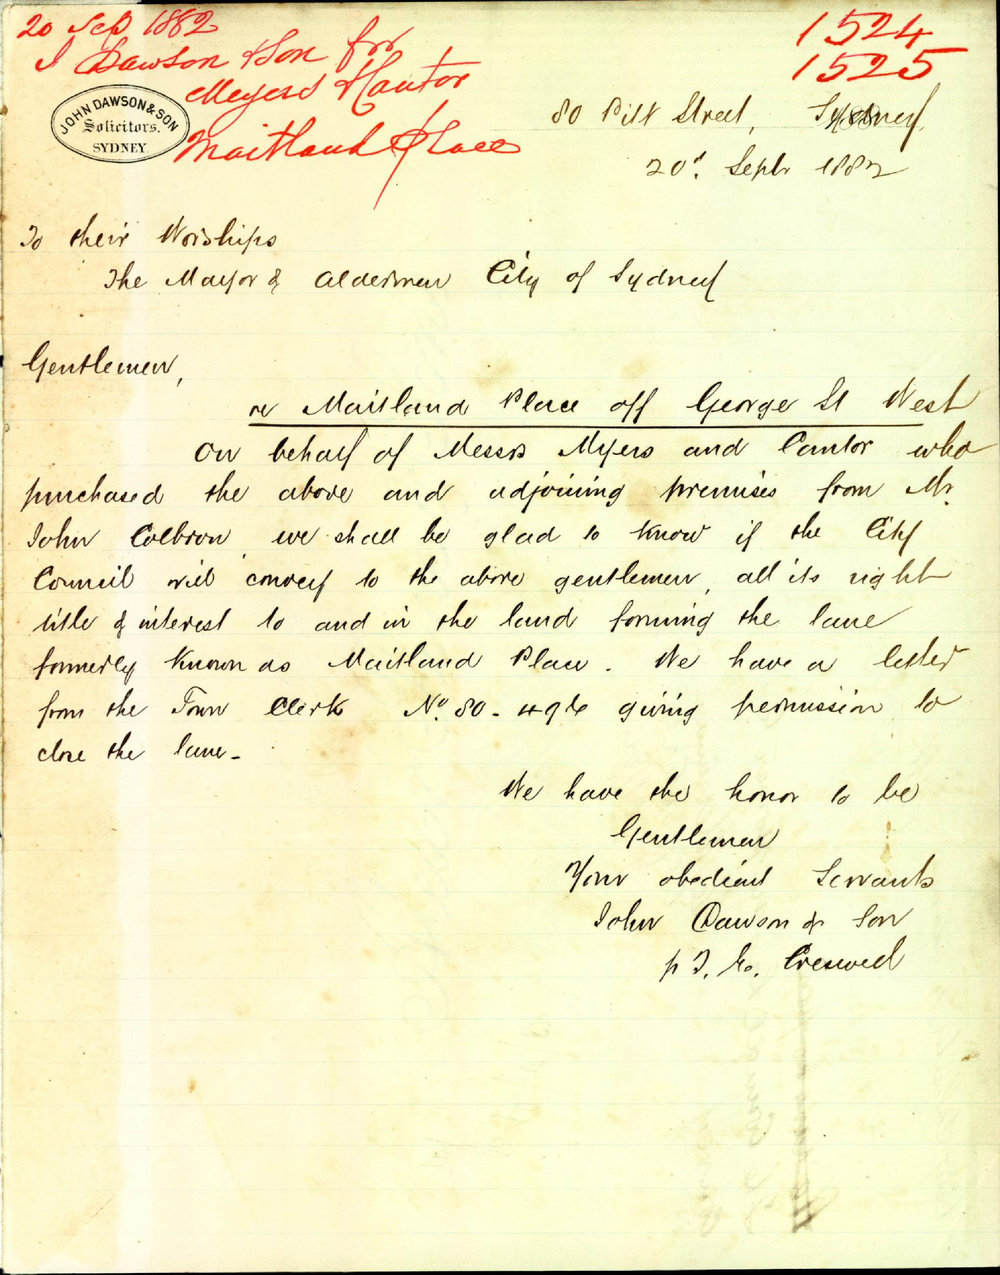 20 Sep 1882
J Dawson & Son for
Meyers & Cantor
Maitland Place
1524
1525
JOHN DAWSON & SON
Solicitors.
SYDNEY
80 Pitt Street, Sydney
20th Septr 1882
To their Worships
The Mayor & Aldermen City of Sydney
Gentlemen,
re Maitland Place off George St West
On behalf of Messrs Myers and Cantor who
purchased the above and adjoining premises from Mr.
John Colbron we shall be glad to know if the City
Council will convey to the above gentlemen, all its right
title & interest to and in the land forming the lane
formerly known as Maitland Place. We have a letter
from the Town Clerk No. 80- giving permission to
close the lane-
We have the honor to be
Gentlemen
Your obedient Servants
John Dawson & Son
p Creswell